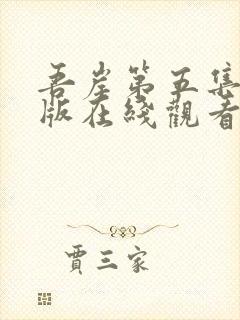 吾岸第五集
版在綫觀看
賈三家